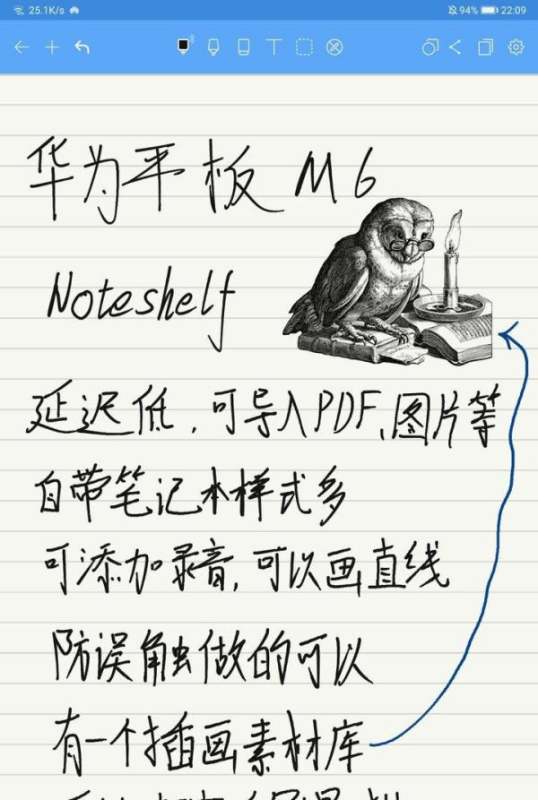 25.1K/s 94% 22:09
华为平板 M6
Noteshelf
延迟低，可导入PDF、图片等
自带笔记本样式多
可添加录音，可以画直线
防误触做的可以
有一个插画素材库